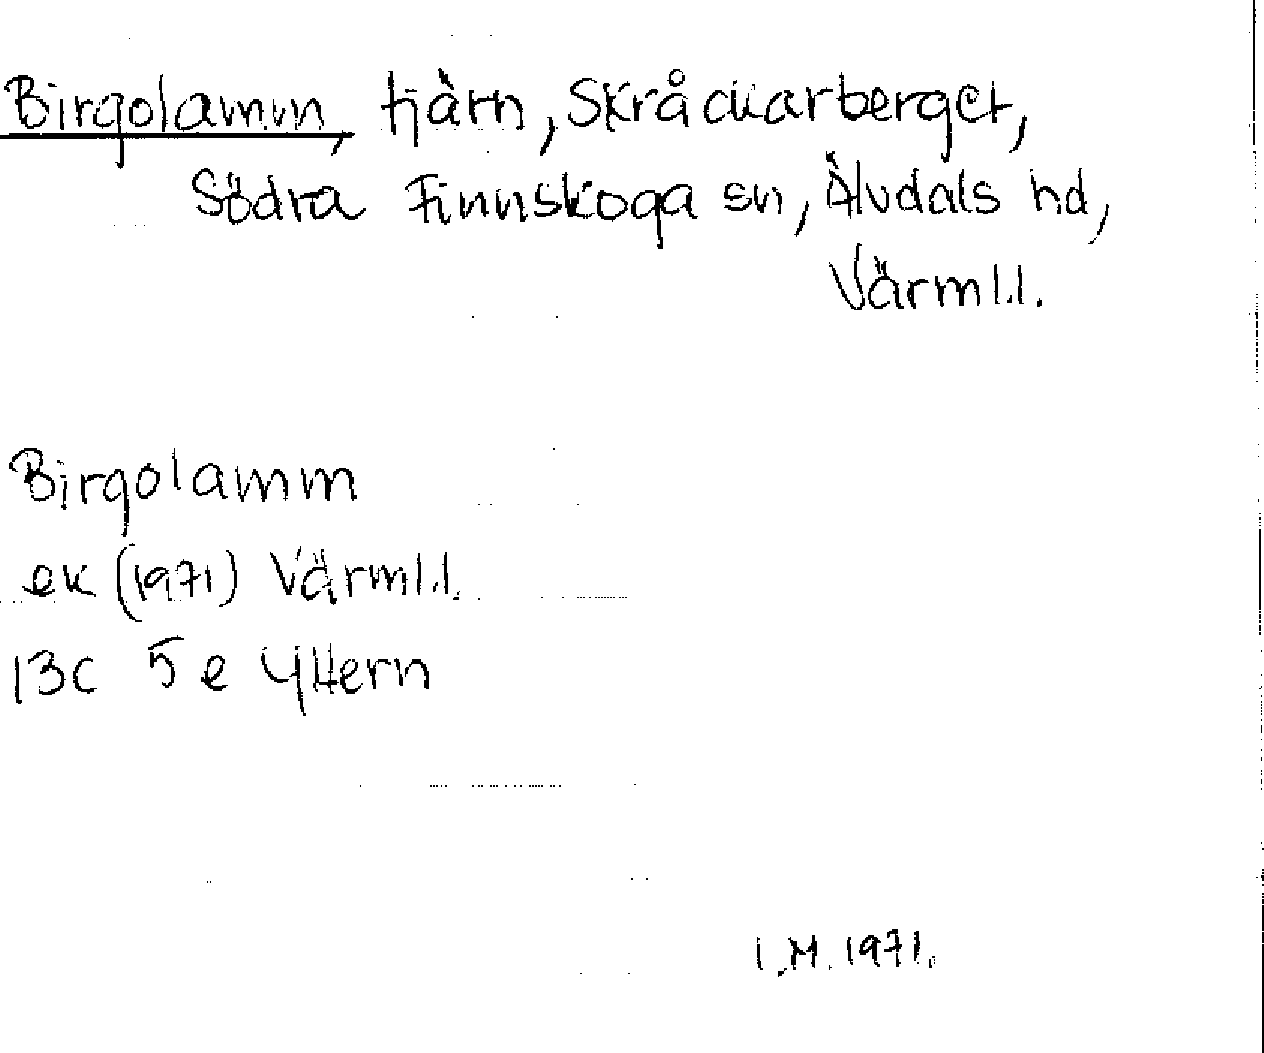 Birgolamm, tjärn, Skråckarberget,
Södra Finnskoga sn, Älvdals hd,
Värml.l.
Birgolamm
ek (1971) Värml.l.
13C 5e Yttern
I.M. 1971.